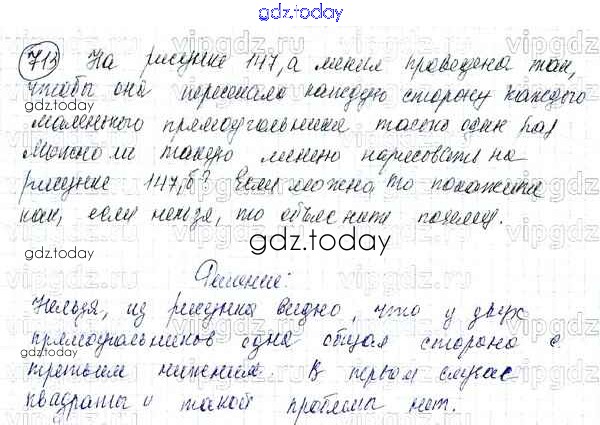 gdz.today
713 На рисунке 147, а линия проведена так,
чтобы она пересекала каждую сторону каждого
gdz.today
маленького прямоугольника только один раз
Можно ли такую линию нарисовать на
рисунке 147, б? Если можно то покажите
как, если нельзя, то объясните почему.
gdz.today
Решение:
Нельзя, из рисунка видно, что у двух
прямоугольников одна общая сторона с
gdz.today
третьим нижним. В первом случае
квадраты и такой проблемы нет.
gdz.today